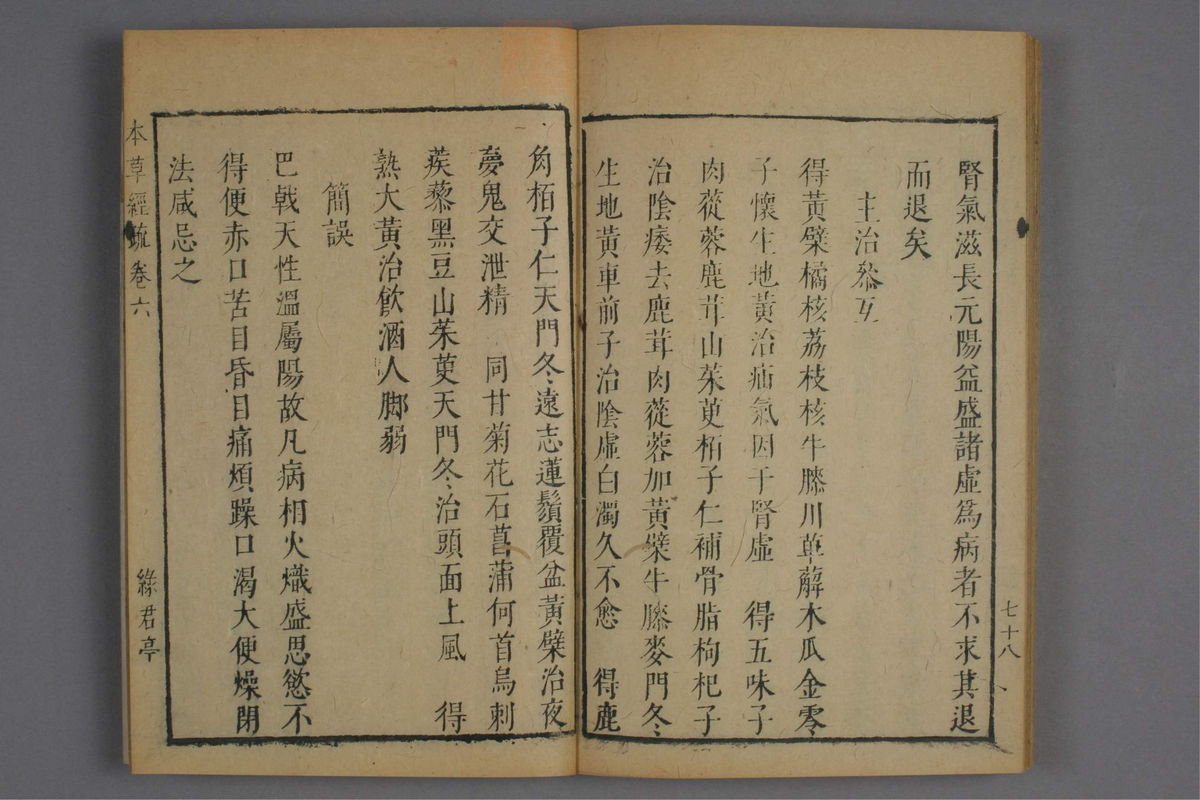 腎氣滋長元陽益盛諸虛爲病者不求其退
而退矣
主治叅互
得黃檗橘核荔枝核牛膝川萆薢木瓜金零
子懷生地黃治疝氣因于腎虛 得五味子
肉蓯蓉鹿茸山茱萸栢子仁補骨脂枸杞子
治陰痿去鹿茸肉蓯蓉加黃檗牛膝麥門冬
生地黃車前子治陰虛白濁久不愈 得鹿
七十八
角栢子仁天門冬遠志蓮鬚覆盆黃檗治夜
夢鬼交泄精 同甘菊花石菖蒲何首烏刺
蒺藜黑豆山茱萸天門冬治頭面上風 得
熟大黃治飲酒人脚弱
簡誤
巴戟天性溫屬陽故凡病相火熾盛思慾不
得便赤口苦目昏目痛煩躁口渴大便燥閉
法咸忌之
本草經疏卷六
綠君亭